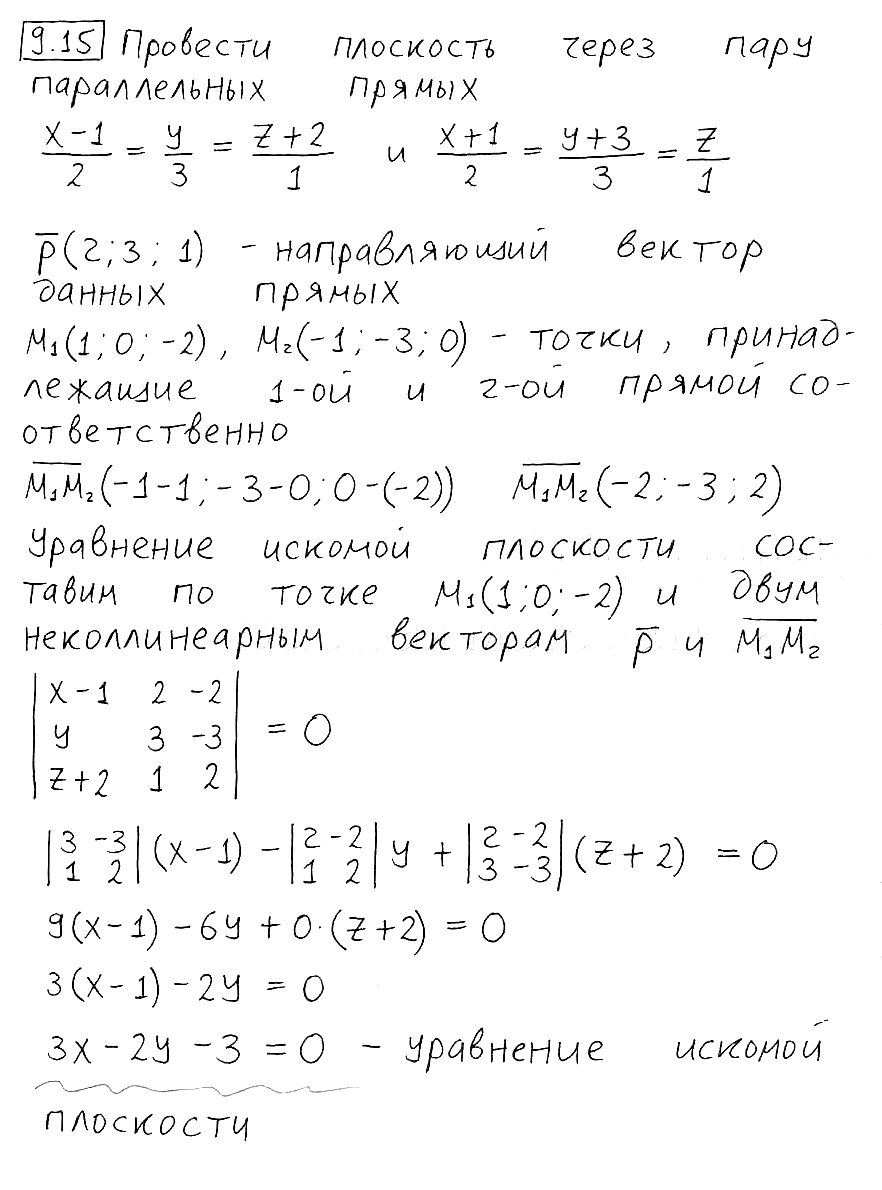 9.15 Провести плоскость через пару
параллельных прямых
x-1/2 = y/3 = z+2/1 и x+1/2 = y+3/3 = z/1
p̅(2; 3; 1) - направляющий вектор
данных прямых
M₁(1; 0; -2), M₂(-1; -3; 0) - точки, принад-
лежащие 1-ой и 2-ой прямой со-
ответственно
M̅₁M̅₂(-1-1; -3-0; 0-(-2)) M̅₁M̅₂(-2; -3; 2)
Уравнение искомой плоскости сос-
тавим по точке M₁(1; 0; -2) и двум
неколлинеарным векторам p̅ и M̅₁M̅₂
|x-1 2 -2|
|y 3 -3| = 0
|z+2 1 2|
|3 -3| (x-1) - |2 -2| y + |2 -2| (z+2) = 0
|1 2| |1 2| |3 -3|
9(x-1) - 6y + 0·(z+2) = 0
3(x-1) - 2y = 0
3x - 2y - 3 = 0 - уравнение искомой
плоскости